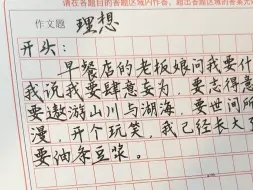 请在各题目的答题区域内作答，超出答题区域的答案无
作文题 理想
开头：
早餐店的老板娘问我要什
我说我要肆意妄为，要忘得意
要遨游山川与湖海，要世间所
漫，开个玩笑，我已经长大了
要油条豆浆。